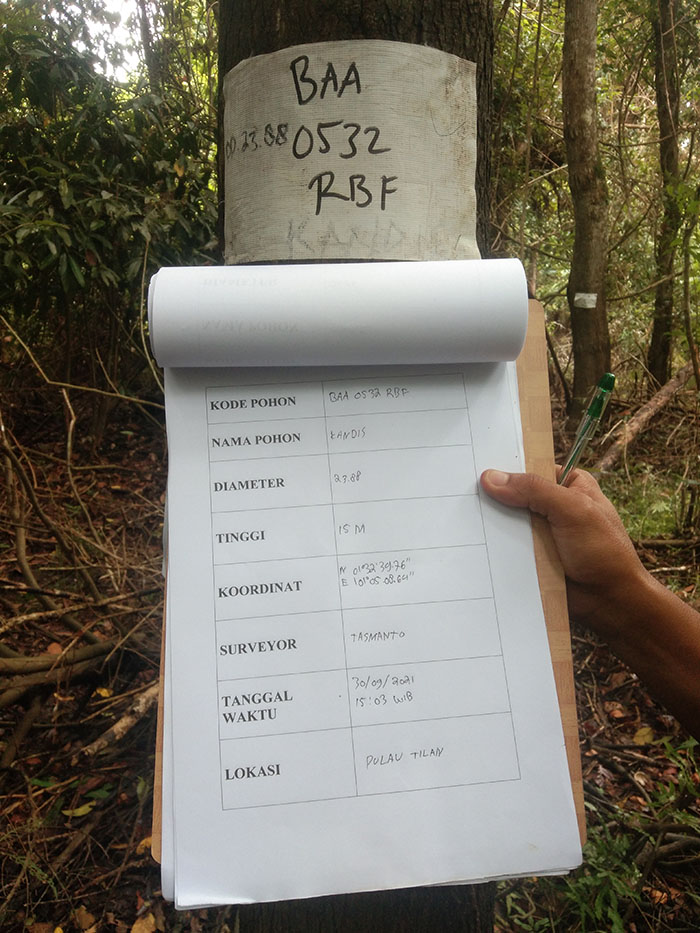 BAA
00.23.88 0532
RBF
KANDIS
KODE POHON BAA 0532 RBF
NAMA POHON KANDIS
DIAMETER 23.88
TINGGI 15 M
KOORDINAT N 01°32'39.76"
E 101°05'08.64"
SURVEYOR TASMANTO
TANGGAL 30/09/2021
WAKTU 15:03 WIB
LOKASI PULAU TILAN